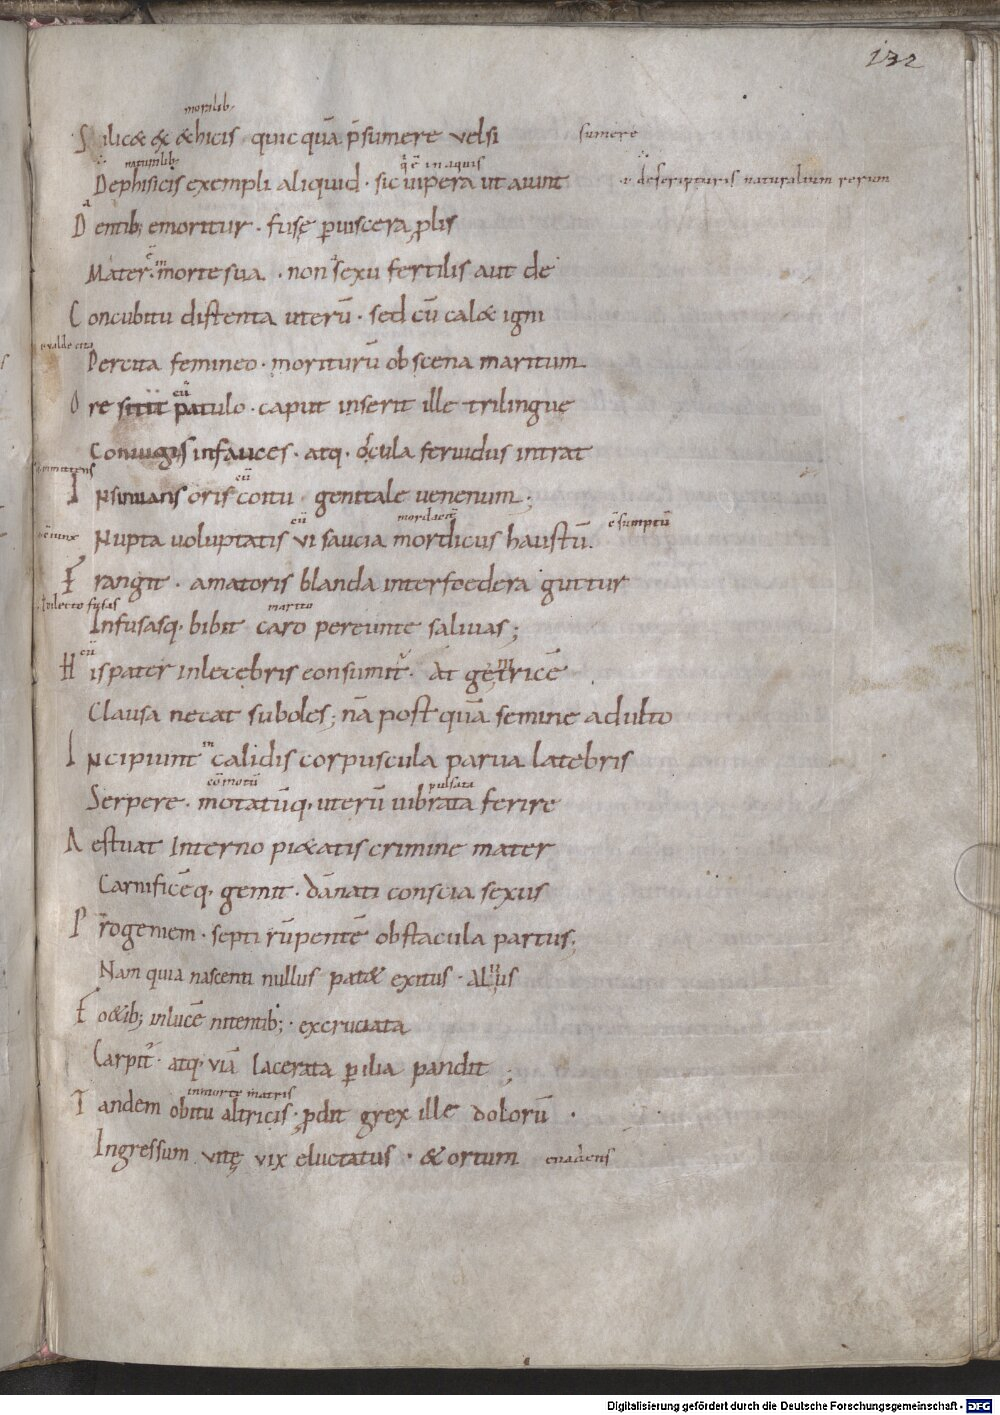 132
moralib;
S ilicæ ex æhicis quicquā p̄sumere velsi sumere
naturalib; q̄ ē in aquis
Dephisicis exempli aliquid · sic uipera ut aiunt ·i· descripturis naturalium rerum
D entib; emoritur · fusę p uiscera plis
Mater · morte sua · non sexu fertilis aut de
C oncubitu distenta uterū · sed cū calæ igni
ualde cita
Percita femineo · moriturū obscena maritum
O re sitit patulo · caput inserit ille trilingue
Coniugis in fauces · atq · oscula feruidus intrat
inmittens eiī
I nsinuans oris coitu · genitale uenenum ;
mordaciī ē sumptū
Nupta uoluptatis ui saucia mordicus haustū.
F rangit · amatoris blanda inter foedera guttur
dilecto fusas marito
Infusasq· bibit caro pereunte saliuas ;
H is pater inlecebris consumit · At genitricē
Clausa necat suboles ; nā postquā semine adulto
I ncipiunt calidis corpuscula parua latebris
cōmotū pulsata
Serpere · motatūq· uterū uibrata ferire
A estuat Interno piæatis crimine mater
Carnificēq· gemit · dānati conscia sexus
P rogeniem · septi rūpentē obstacula partus;
Nam quia nascenti nullus patæ exitus · Aluus
F oetib; in lucē nitentib; · excruciata
Carpit · atq· viā lacerata p ilia pandit ;
inmorte matris
T andem obitu altricis · pdit grex ille dolorū ·
Ingressum vitę vix eluctatus · & ortum euadens
Digitalisierung gefördert durch die Deutsche Forschungsgemeinschaft - DFG